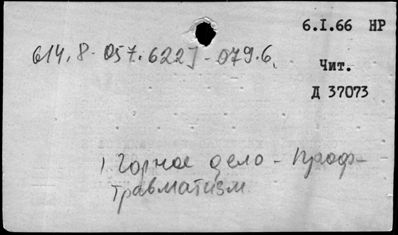 6.I.66 НР
614.8-057.622]-079.6
Чит.
Д 37073
1 Горное дело - Проф-
травматизм